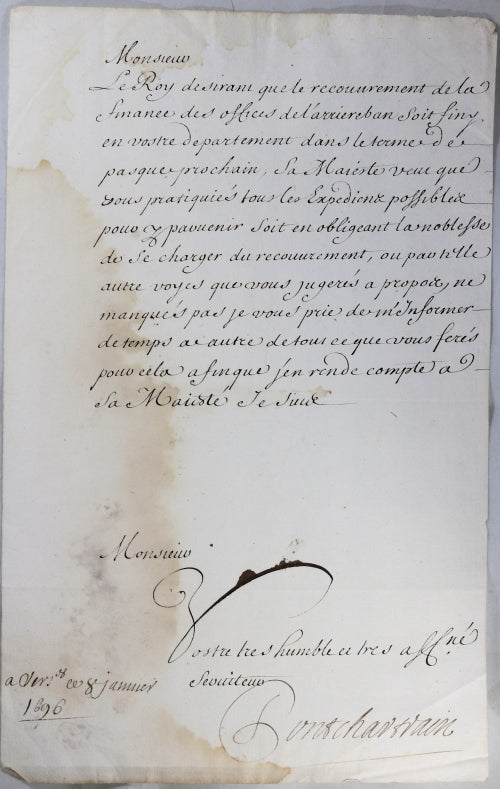 Monsieur
Le Roy desirant que le recouurement de la
finance des offices de l'arriereban soit finy
en vostre departement dans le terme de
pasque prochain, Sa Maieste veut que
vous pratiquiés tous les Expediens possibles
pour y paruenir soit en obligeant la noblesse
de se charger du recouurement, ou par telle
autre voyes que vous jugerés a propos, ne
manqués pas je vous prie de m'Informer
de temps a autre de tout ce que vous ferés
pour cela afin que j'en rende compte a
Sa Maieste Je suis
Monsieur
Vostre tres humble et tres aff.né
Seruiteur
a Ver.es ce 8 januier
1696
Pontchartrain